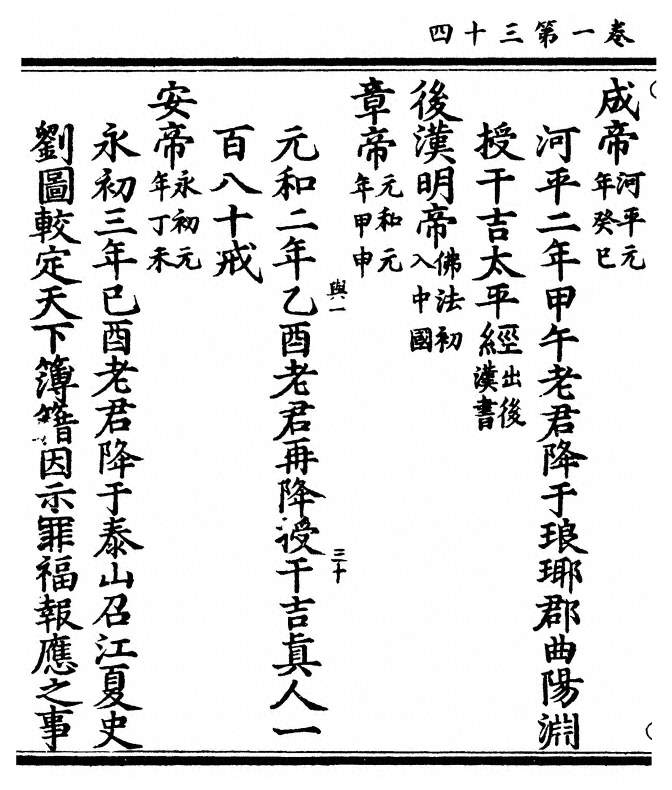 卷一第三十四
成帝河平元年癸巳
河平二年甲午老君降于琅琊郡曲陽淵
授干吉太平經出後漢書
後漢明帝佛法初入中國
章帝元和元年甲申
與一
三十
元和二年乙酉老君再降授干吉眞人一
百八十戒
安帝永初元年丁未
永初三年已酉老君降于泰山召江夏史
劉圖較定天下簿籍因示罪福報應之事